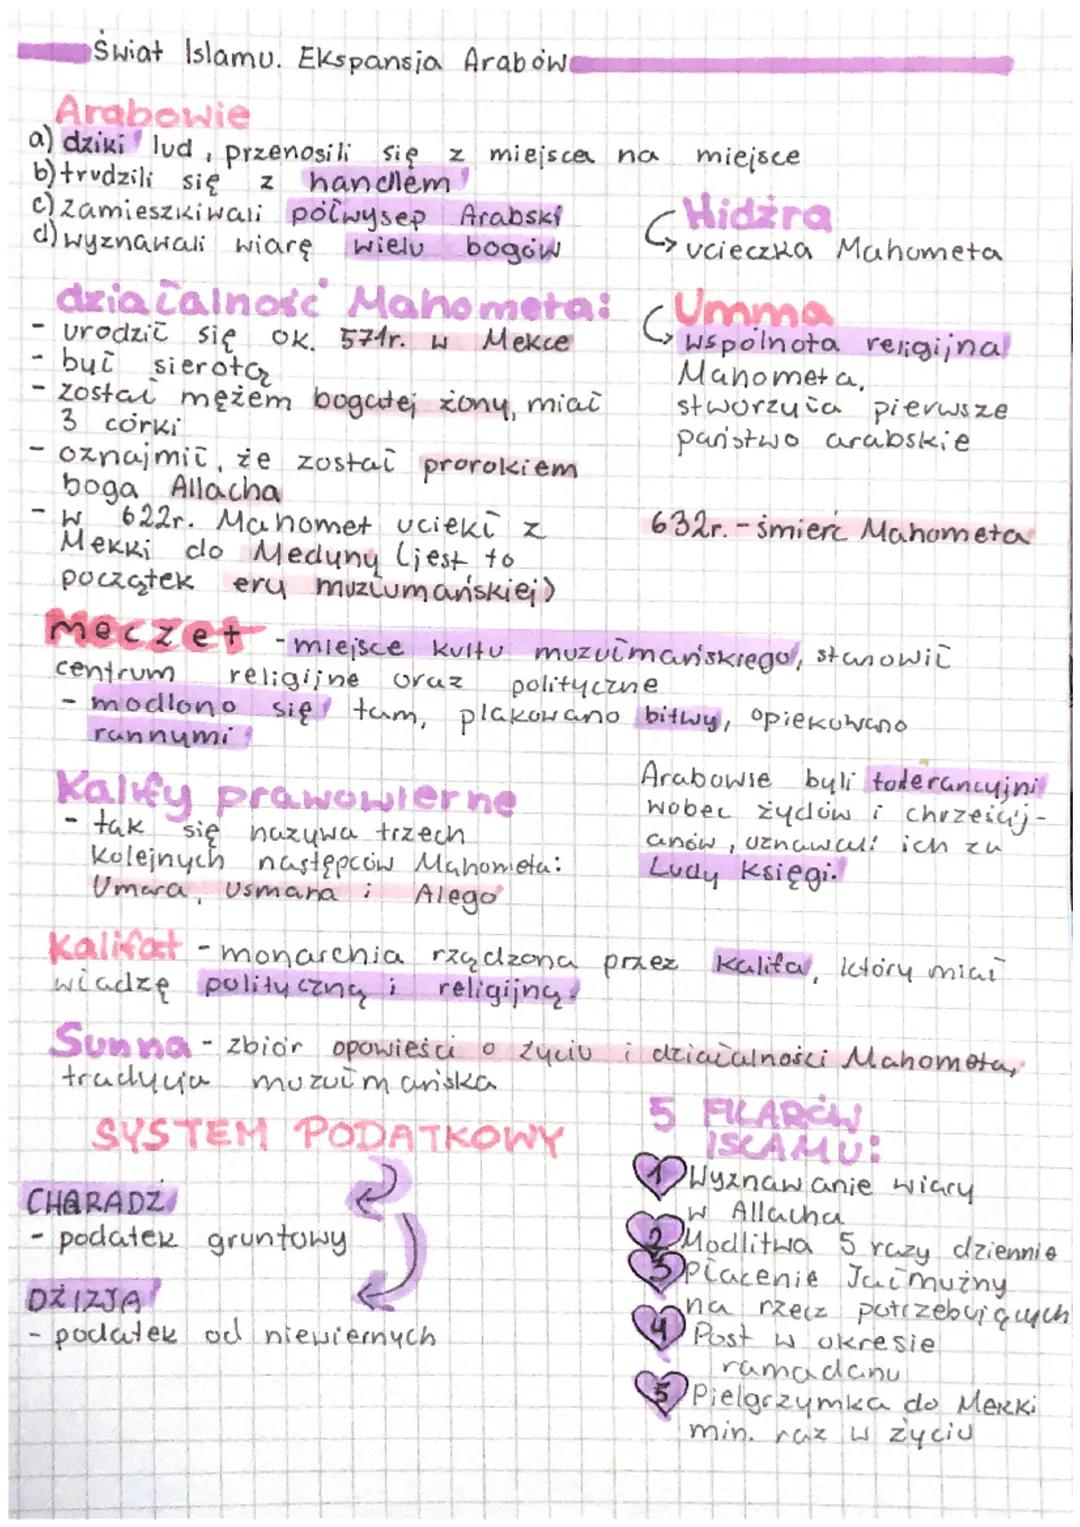 Świat Islamu. Ekspansja Arabów
Arabowie
a) dziki lud, przenosili się z miejsca na miejsce
b) trudzili się z handlem
c) zamieszkiwali półwysep Arabski
d) wyznawali wiarę wielu bogów
Hidżra
ucieczka Mahometa
działalność Mahometa:
- urodził się ok. 571r. w Mekce
- był sierotą
- został mężem bogatej żony, miał
3 córki
- oznajmił, że został prorokiem
boga Allacha
- w 622r. Mahomet uciekł z
Mekki do Medyny (jest to
początek ery muzłumańskiej)
Umma
wspólnota religijna
Mahometa,
stworzyła pierwsze
państwo arabskie
632r. - śmierć Mahometa
Meczet - miejsce kultu muzułmańskiego, stanowił
centrum religijne oraz polityczne
- modlono się tam, plakowano bitwy, opiekowano
rannymi
Kalify prawowierne
- tak się nazywa trzech
kolejnych następców Mahometa:
Umara, Usmana i Alego
Arabowie byli tolerancyjni
wobec żydów i chrześcij-
anów, uznawali ich za
Ludy Księgi.
Kalifat - monarchia rządzona przez Kalifa, który miał
władzę polityczną i religijną
Sunna - zbiór opowieści o życiu i działalności Mahometa,
tradycja muzułmańska
SYSTEM PODATKOWY
CHARADŹ
- podatek gruntowy
DŻIZJA
- podatek od niewiernych
5 FILARÓW
ISLAMU:
1 Wyznawanie wiary
w Allacha
2 Modlitwa 5 razy dziennie
3 Płacenie Jałmużny
na rzecz potrzebujących
4 Post w okresie
ramadanu
5 Pielgrzymka do Mekki
min. raz w życiu